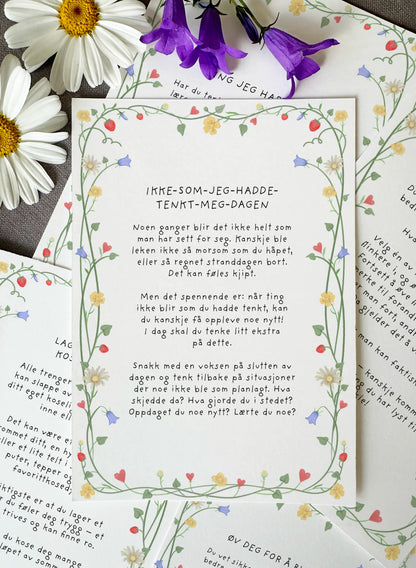 Har du tenkt
JEG HADD
IKKE-SOM-JEG-HADDE-
TENKT-MEG-DAGEN
Noen ganger blir det ikke helt som
man har sett for seg. Kanskje ble
leken ikke så morsom som du håpet,
eller så regnet stranddagen bort.
Det kan føles kjipt.
Men det spennende er: når ting
ikke blir som du hadde tenkt, kan
du kanskje få oppleve noe nytt!
I dag skal du tenke litt ekstra
på dette.
Snakk med en voksen på slutten av
dagen og tenk tilbake på situasjoner
der noe ikke ble som planlagt. Hva
skjedde da? Hva gjorde du i stedet?
Oppdaget du noe nytt? Lærte du noe?
LAG
KOS
Alle trenger
kan slappe av
ditt eget koses
inne elle
Det kan være et
rommet ditt, en hy
eller et lite telt l
puter, tepper og
favorittkosed
iktigste er at du lager et
r du føler deg trygg – et
trives og kan finne ro.
du kose deg mange
løpet av somm
Velg en av
flinkere i, og
Fortsett å
merke til forand
man først
andr
– kanskje kan
ng du har lyst til
ØV DEG FOR Å B
Du vet sikke
bedre